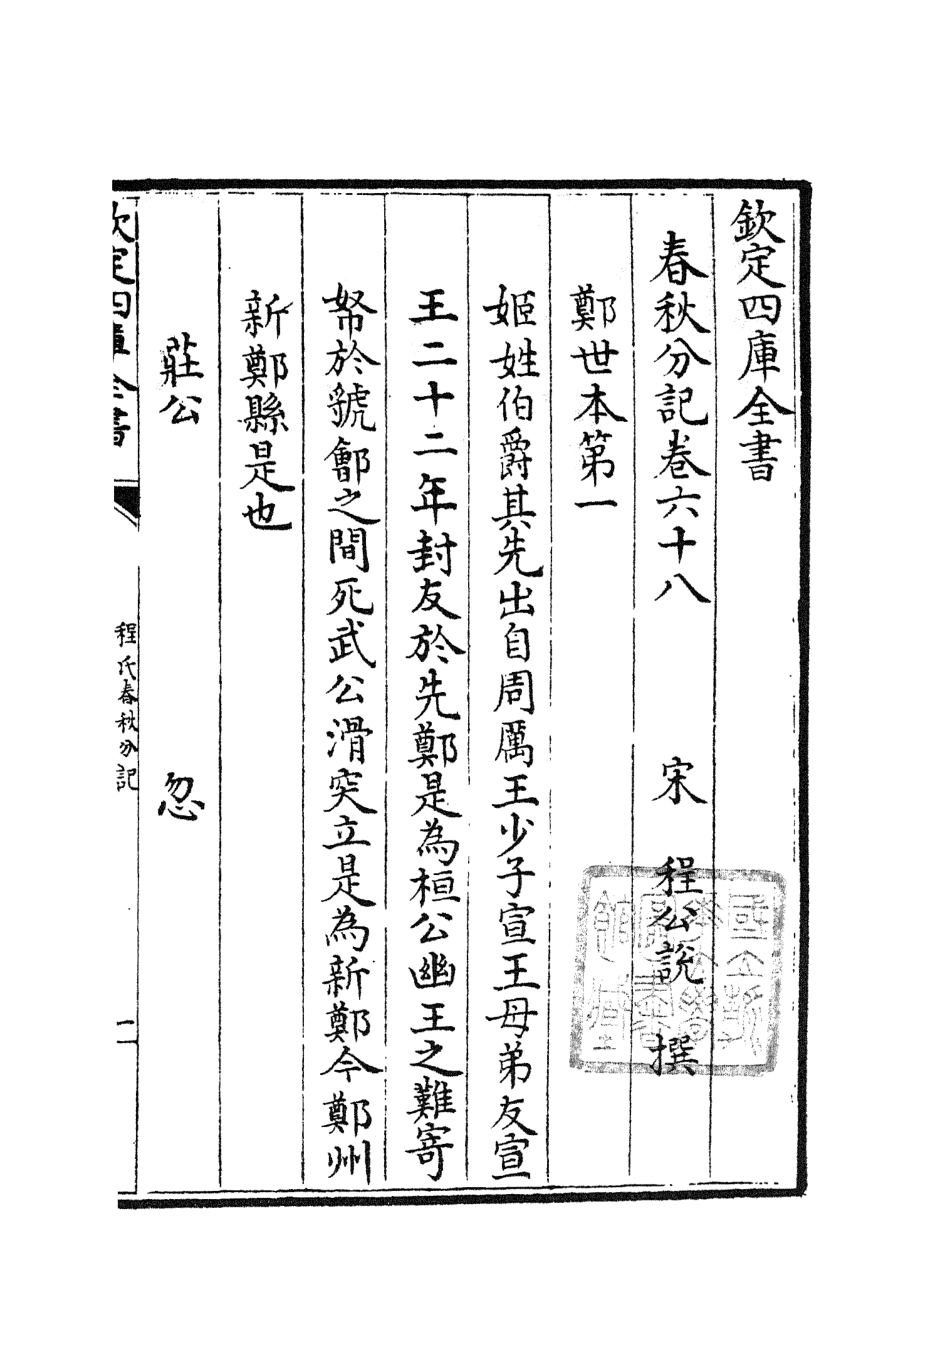 欽定四庫全書
春秋分記卷六十八 宋 程公說 撰
鄭世本第一
姬姓伯爵其先出自周厲王少子宣王母弟友宣
王二十二年封友於先鄭是為桓公幽王之難寄
帑於虢鄶之間死武公滑突立是為新鄭今鄭州
新鄭縣是也
莊公 忽
欽定四庫全書
程氏春秋分記